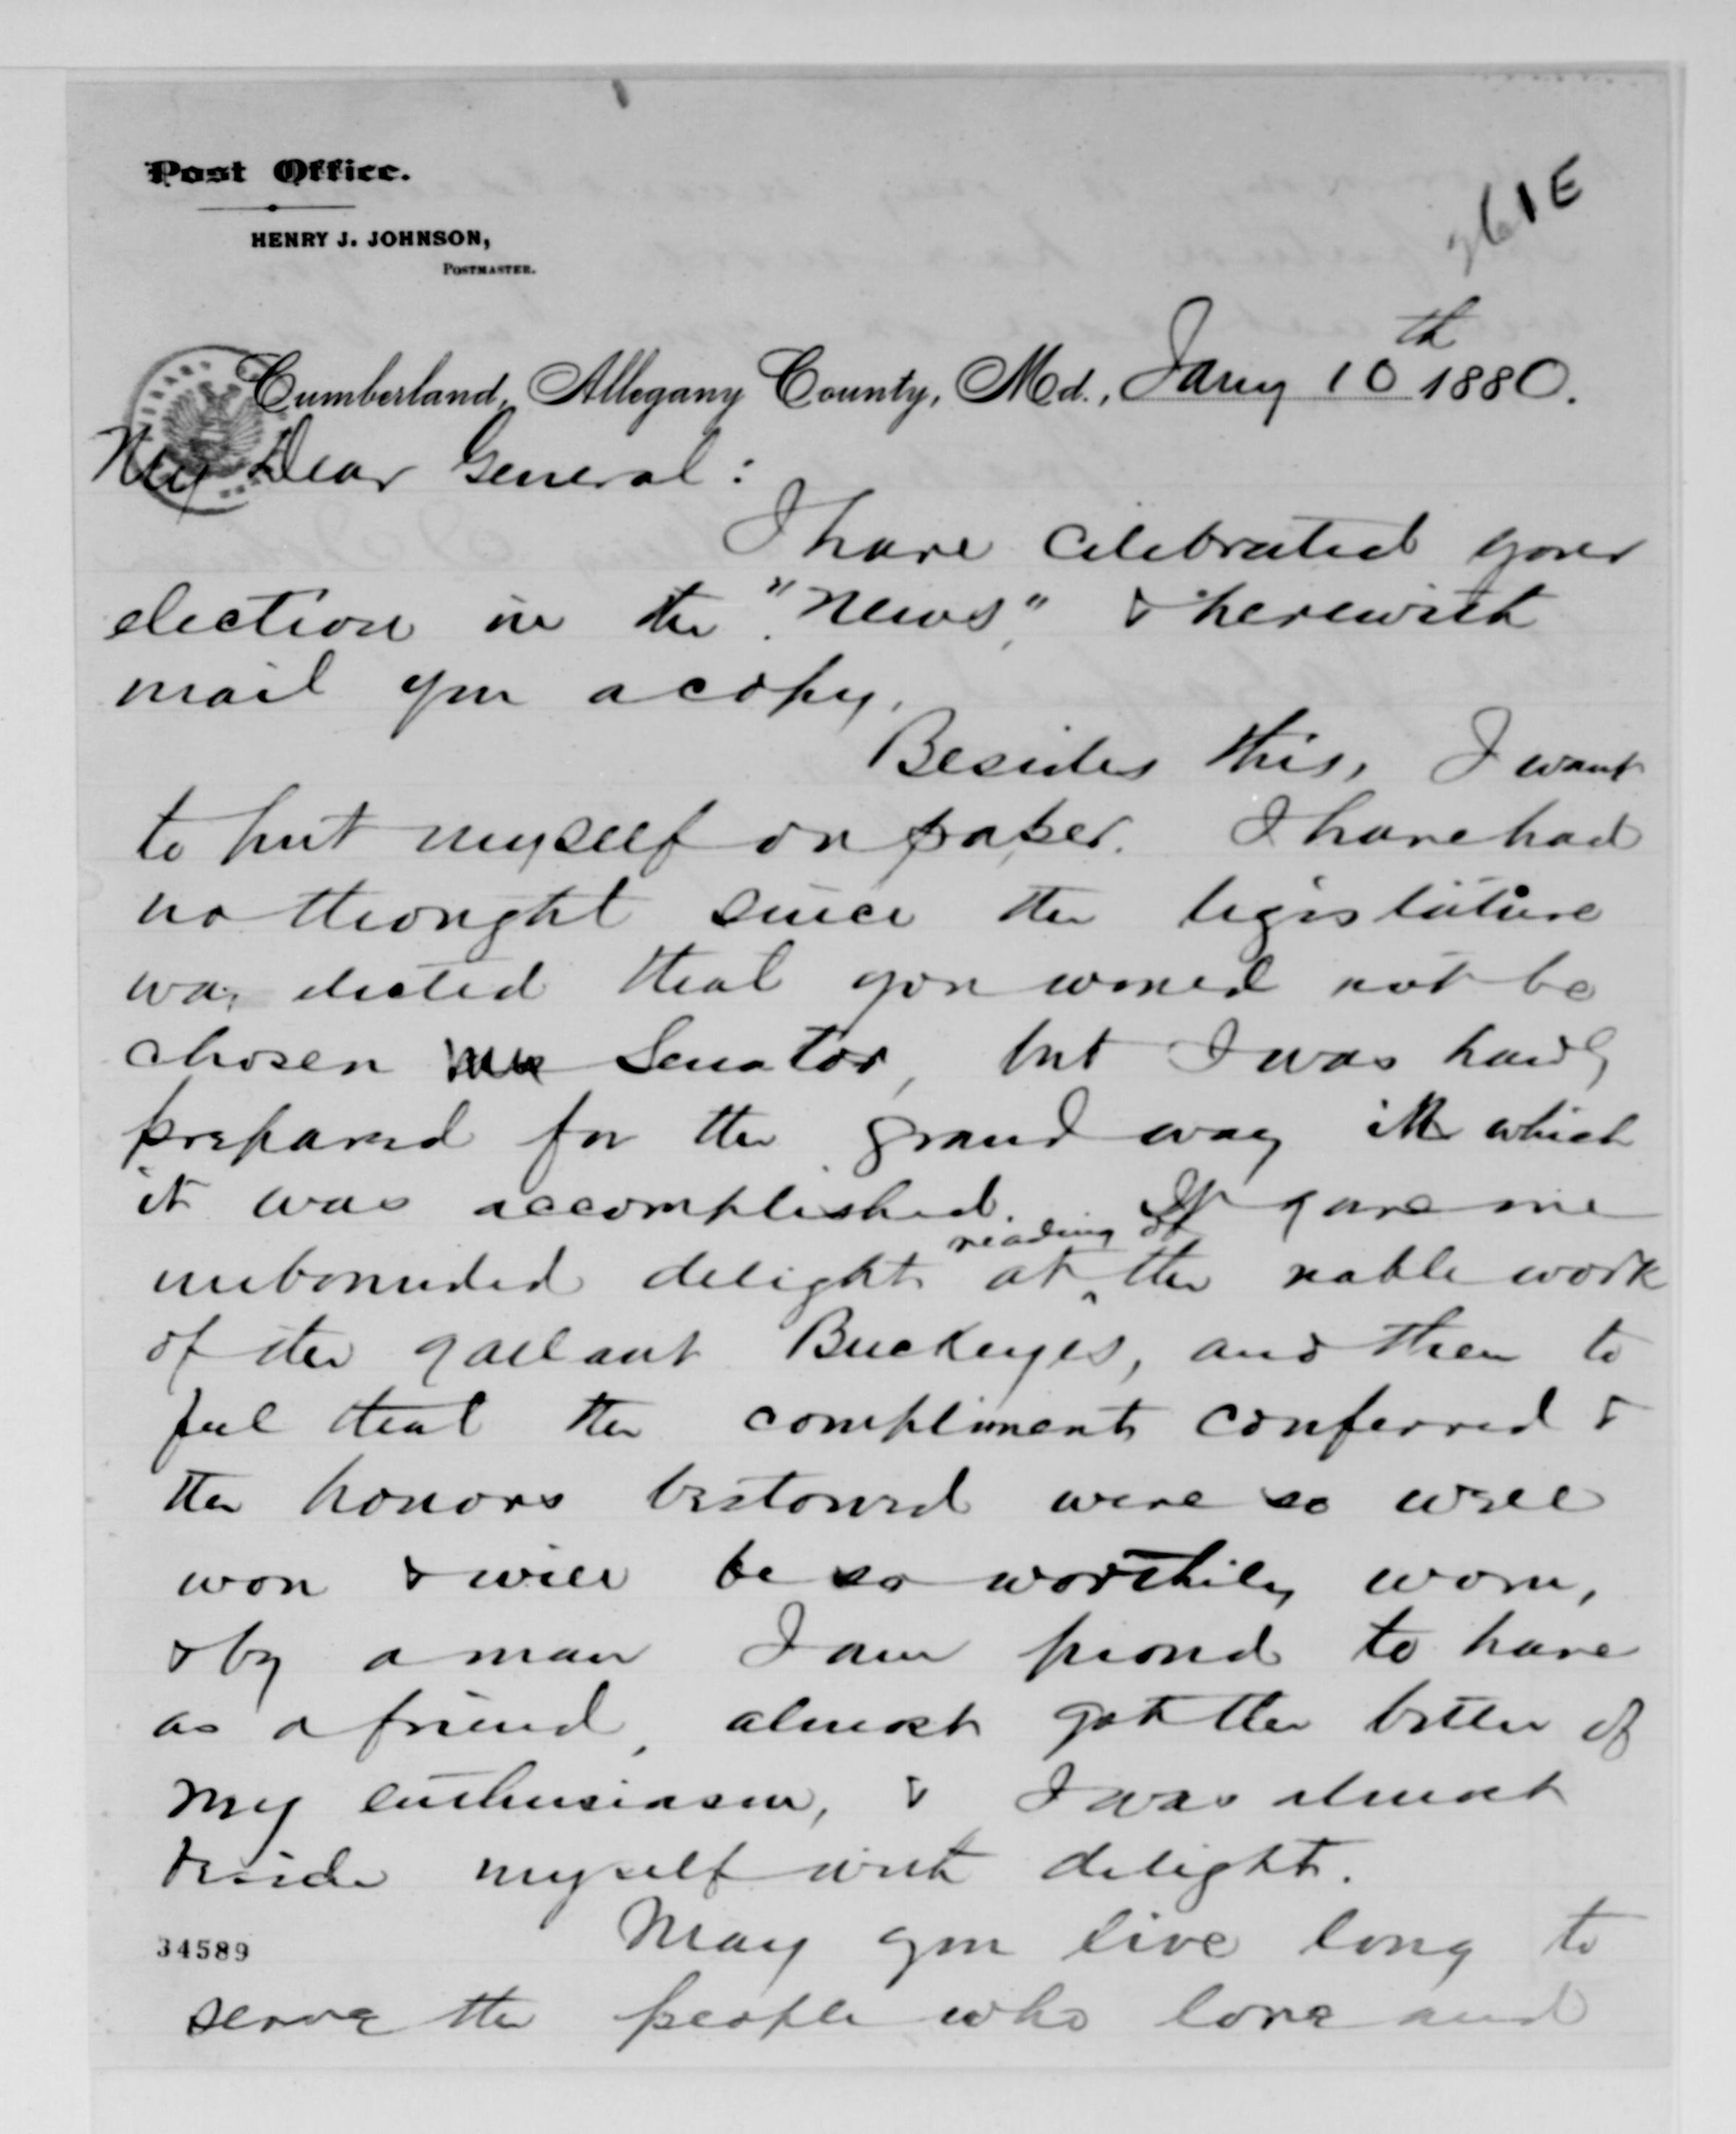 Post Office.
HENRY J. JOHNSON,
POSTMASTER.
361E
Cumberland, Allegany County, Md., Jany 10th 1880.
My Dear General:
I have celebrated your
election in the "News," & herewith
mail you a copy.
Besides this, I want
to put myself on paper. I have had
no thought since the legislature
was elected that you would not be
chosen Senator, but I was hardly
prepared for the grand way in which
it was accomplished. It gave me
unbounded delight at reading of the noble work
of the gallant Buckeyes, and then to
feel that the compliments conferred &
the honors bestowed were so well
won & will be so worthily worn,
& by a man I am proud to have
as a friend, almost got the better of
my enthusiasm, & I was almost
beside myself with delight.
May you live long to
34589
serve the people who love and